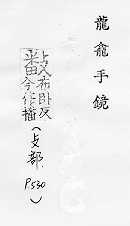 龍龕手鏡
𢿥布卧反
今作播
(攴部 P530)